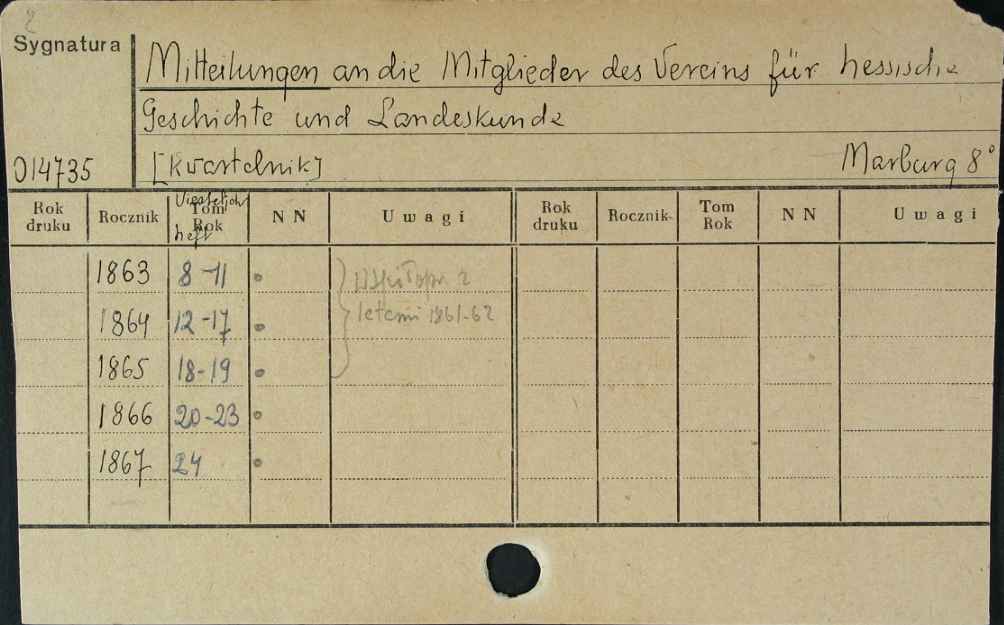 2
Sygnatura
Mitteilungen an die Mitglieder des Vereins für hessische
Geschichte und Landeskunde
014735 [Kwartalnik] Marburg 8°
Vierteljahr
heft
Rok druku Rocznik Tom Rok N N Uwagi Rok druku Rocznik Tom Rok N N Uwagi
1863 8-11 Współopr. z
1864 12-17 letami 1861-62
1865 18-19
1866 20-23
1867 24